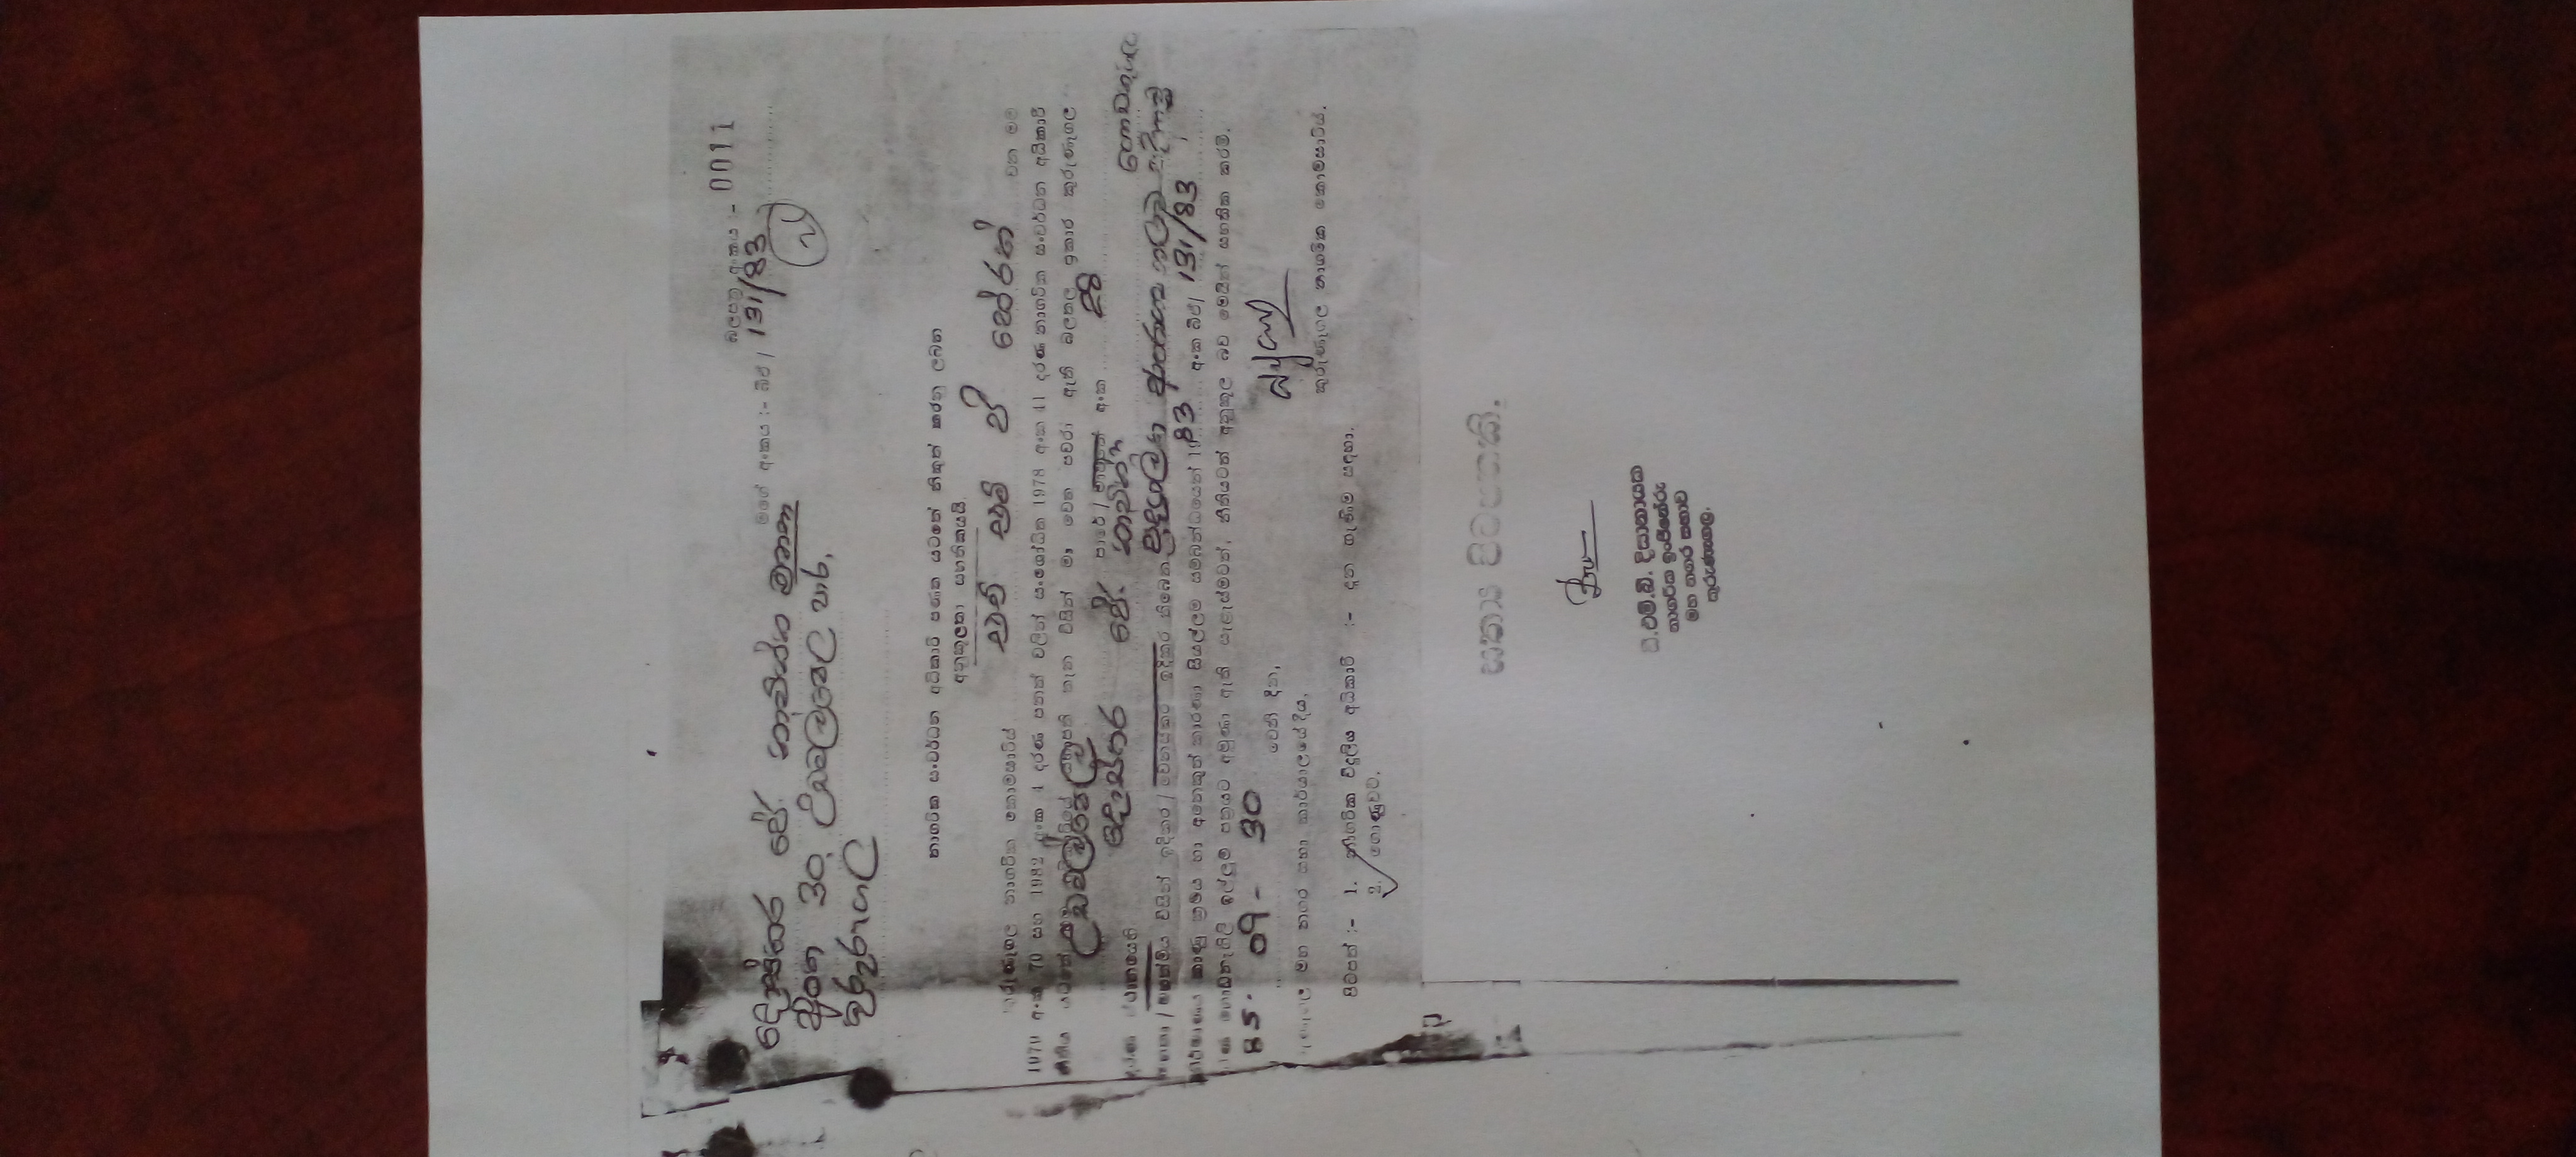 බලපත්‍ර අංකය :- 0011
මගේ අංකය :- බී/ 131/83
දොස්තර ජේ. මහතා
අංක 30, උඩවල්පොල පාර,
කුරුණෑගල
නාගරික සංවර්ධන අධිකාරි පණත යටතේ නිකුත් කරනු ලබන
අනුකූලතා සහතිකයයි
කුරුණෑගල නාගරික කොමසාරිස් එච් එම් පී හේරත් වන මම
1979 අංක 70 සහ 1982 අංක 4 දරණ පනත් වලින් සංශෝධිත 1978 අංක 41 දරණ නාගරික සංවර්ධන අධිකාරි
නීතිය යටතේ සභාපති තැන විසින් මා වෙත පවරා ඇති බලතල ප්‍රකාර කුරුණෑගල
උඩවල්පොල පාරේ / මාවතේ අංක 28
දරණ ස්ථානයෙහි දොස්තර ජේ.
මහතා / මහත්මිය විසින් ඉදිකර / වෙනස්කර ඉදිකර තිබෙන
කාණු ක්‍රමය හා අනෙකුත් කාරණා සියල්ලම සම්බන්ධයෙන් 1983 අංක බී/ 131/83
දරණ ගොඩනැගිලි ඉල්ලුම් පත්‍රයට අමුණා ඇති සැළැස්මටත්, නීතියටත් අනුකූල බව මෙයින් සහතික කරමි.
85. 09 - 30 වෙනි දින,
කුරුණෑගල මහ නගර සභා කාර්යාලයේ දීය.
කුරුණෑගල නාගරික කොමසාරිස්.
පිටපත් :- 1. නාගරික විදුලිය අධිකාරි :- දැන ගැණීම සඳහා.
2. ගොණුවට.
සත්‍ය පිටපතකි.
ඩී.එම්.බී. දිසානායක
නාගරික ඉංජිනේරු
මහ නගර සභාව
කුරුණෑගල.